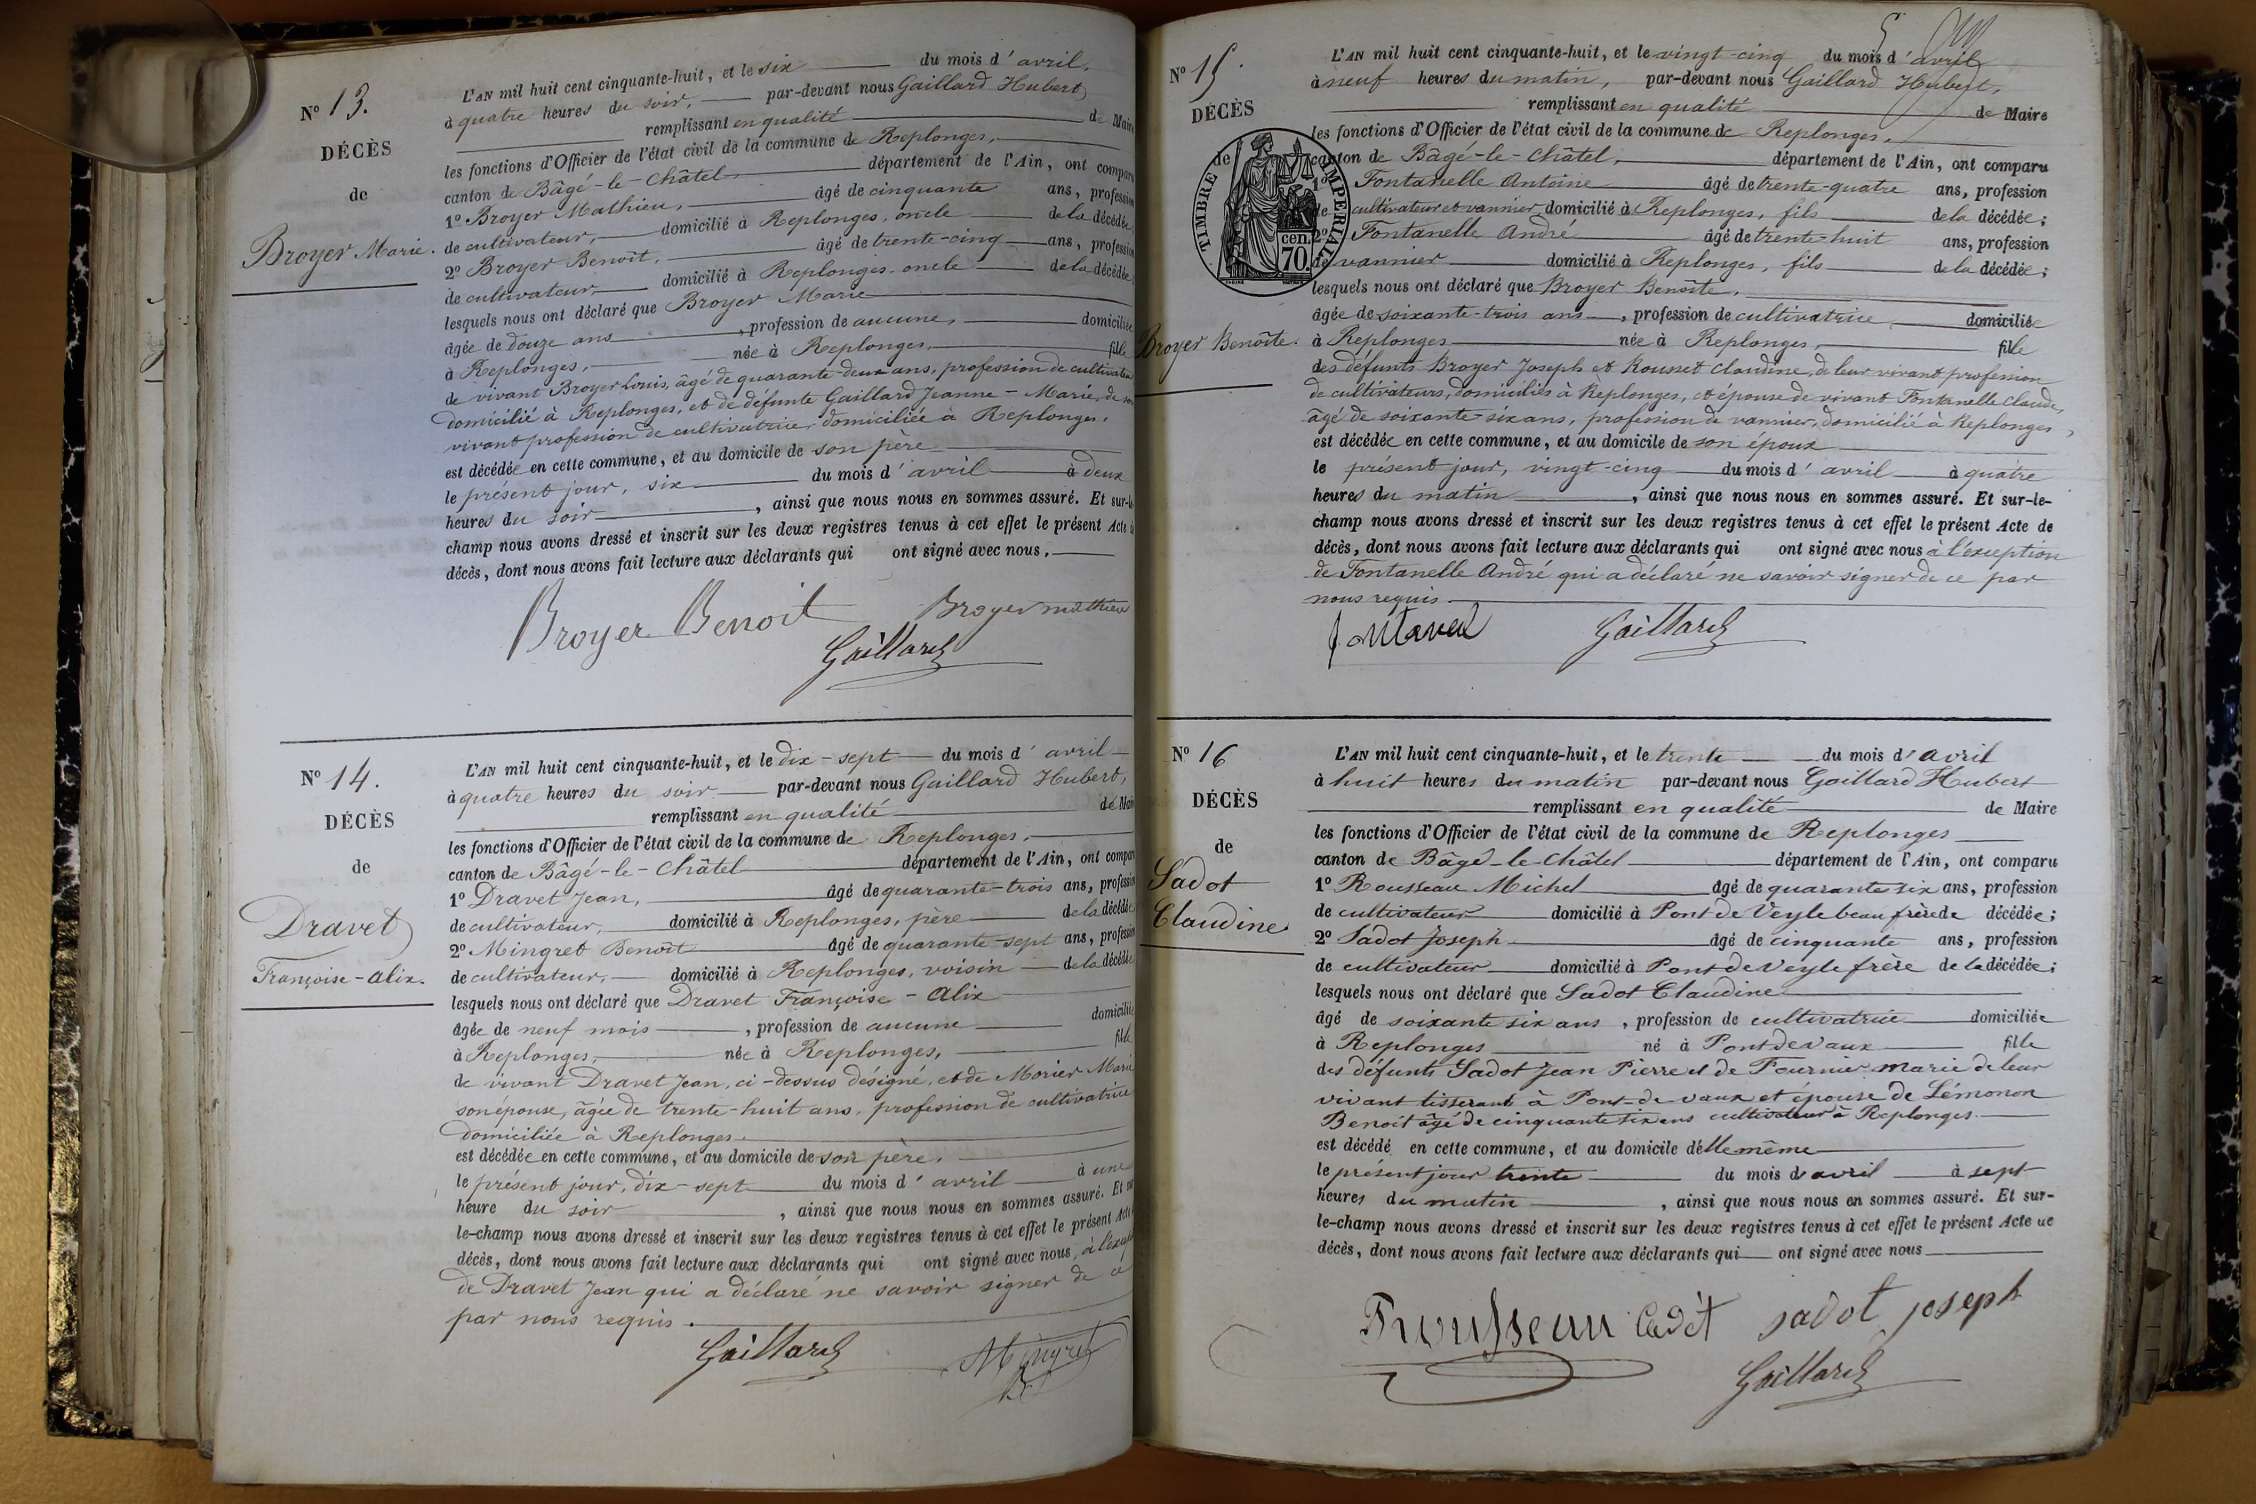 N° 13.
DÉCÈS
de
Broyer Marie.
L'AN mil huit cent cinquante-huit, et le six du mois d'avril,
à quatre heures du soir, par-devant nous Gaillard Hubert,
remplissant en qualité de Maire
les fonctions d'Officier de l'état civil de la commune de Replonges,
canton de Bâgé-le-Châtel, département de l'Ain, ont comparu
1° Broyer Mathieu, âgé de cinquante ans, profession
de cultivateur, domicilié à Replonges, oncle de la décédée
2° Broyer Benoît, âgé de trente-cinq ans, profession
de cultivateur, domicilié à Replonges, oncle de la décédée
lesquels nous ont déclaré que Broyer Marie
âgée de douze ans, profession de aucune, domiciliée
à Replonges, née à Replonges, fille
de vivant Broyer Louis, âgé de quarante-deux ans, profession de cultivateur
domicilié à Replonges, et de défunte Gaillard Jeanne-Marie, de son
vivant profession de cultivatrice, domiciliée à Replonges,
est décédée en cette commune, et au domicile de son père
le présent jour, six du mois d'avril à deux
heures du soir, ainsi que nous nous en sommes assuré. Et sur-le-
champ nous avons dressé et inscrit sur les deux registres tenus à cet effet le présent Acte de
décès, dont nous avons fait lecture aux déclarants qui ont signé avec nous,
Broyer Benoit Broyer mathieu
Gaillard
N° 14.
DÉCÈS
de
Dravet
Françoise-Alix.
L'AN mil huit cent cinquante-huit, et le dix-sept du mois d'avril
à quatre heures du soir par-devant nous Gaillard Hubert,
remplissant en qualité de Maire
les fonctions d'Officier de l'état civil de la commune de Replonges,
canton de Bâgé-le-Châtel département de l'Ain, ont comparu
1° Dravet Jean, âgé de quarante-trois ans, profession
de cultivateur, domicilié à Replonges, père de la décédée
2° Mingret Benoît âgé de quarante-sept ans, profession
de cultivateur, domicilié à Replonges, voisin de la décédée
lesquels nous ont déclaré que Dravet Françoise-Alix
âgée de neuf mois, profession de aucune domiciliée
à Replonges, née à Replonges, fille
de vivant Dravet Jean, ci-dessus désigné, et de Morier Marie
son épouse, âgée de trente-huit ans, profession de cultivatrice
domiciliée à Replonges.
est décédée en cette commune, et au domicile de son père,
le présent jour, dix-sept du mois d'avril à une
heure du soir, ainsi que nous nous en sommes assuré. Et sur
le-champ nous avons dressé et inscrit sur les deux registres tenus à cet effet le présent Acte
décès, dont nous avons fait lecture aux déclarants qui ont signé avec nous, à l'excep
de Dravet Jean qui a déclaré ne savoir signer de ce
par nous requis.
Gaillard Mingret
N° 15.
DÉCÈS
de
TIMBRE IMPERIAL
cen. 70.
Broyer Benoîte.
L'AN mil huit cent cinquante-huit, et le vingt-cinq du mois d'avril
à neuf heures du matin, par-devant nous Gaillard Hubert,
remplissant en qualité de Maire
les fonctions d'Officier de l'état civil de la commune de Replonges,
canton de Bâgé-le-Châtel, département de l'Ain, ont comparu
1° Fontanelle Antoine âgé de trente-quatre ans, profession
de cultivateur et vannier, domicilié à Replonges, fils de la décédée;
2° Fontanelle André âgé de trente-huit ans, profession
de vannier domicilié à Replonges, fils de la décédée;
lesquels nous ont déclaré que Broyer Benoîte,
âgée de soixante-trois ans, profession de cultivatrice, domiciliée
à Replonges née à Replonges, fille
des défunts Broyer Joseph et Rousset Claudine, de leur vivant profession
de cultivateurs, domiciliés à Replonges, et épouse de vivant Fontanelle Claude,
âgé de soixante-six ans, profession de vannier, domicilié à Replonges,
est décédée en cette commune, et au domicile de son époux
le présent jour, vingt-cinq du mois d'avril à quatre
heures du matin, ainsi que nous nous en sommes assuré. Et sur-le-
champ nous avons dressé et inscrit sur les deux registres tenus à cet effet le présent Acte de
décès, dont nous avons fait lecture aux déclarants qui ont signé avec nous à l'exception
de Fontanelle André qui a déclaré ne savoir signer de ce par
nous requis
Gaillard
N° 16
DÉCÈS
de
Sadot
Claudine
L'AN mil huit cent cinquante-huit, et le trente du mois d'avril
à huit heures du matin par-devant nous Gaillard Hubert
remplissant en qualité de Maire
les fonctions d'Officier de l'état civil de la commune de Replonges
canton de Bâgé-le-Châtel département de l'Ain, ont comparu
1° Rousseau Michel âgé de quarante six ans, profession
de cultivateur domicilié à Pont de Veyle beau frère de décédée;
2° Sadot Joseph âgé de cinquante ans, profession
de cultivateur domicilié à Pont de Veyle frère de la décédée;
lesquels nous ont déclaré que Sadot Claudine
âgé de soixante six ans, profession de cultivatrice domiciliée
à Replonges né à Pont de Vaux fille
des défunts Sadot Jean Pierre et de Fournier Marie de leur
vivant tisserants à Pont-de-vaux et épouse de Lémonon
Benoit âgé de cinquante six ans cultivateur à Replonges
est décédé en cette commune, et au domicile d'elle même
le présent jour trente du mois d'avril à sept
heures du matin, ainsi que nous nous en sommes assuré. Et sur-
le-champ nous avons dressé et inscrit sur les deux registres tenus à cet effet le présent Acte de
décès, dont nous avons fait lecture aux déclarants qui ont signé avec nous
Cadèt sadot joseph
Gaillard